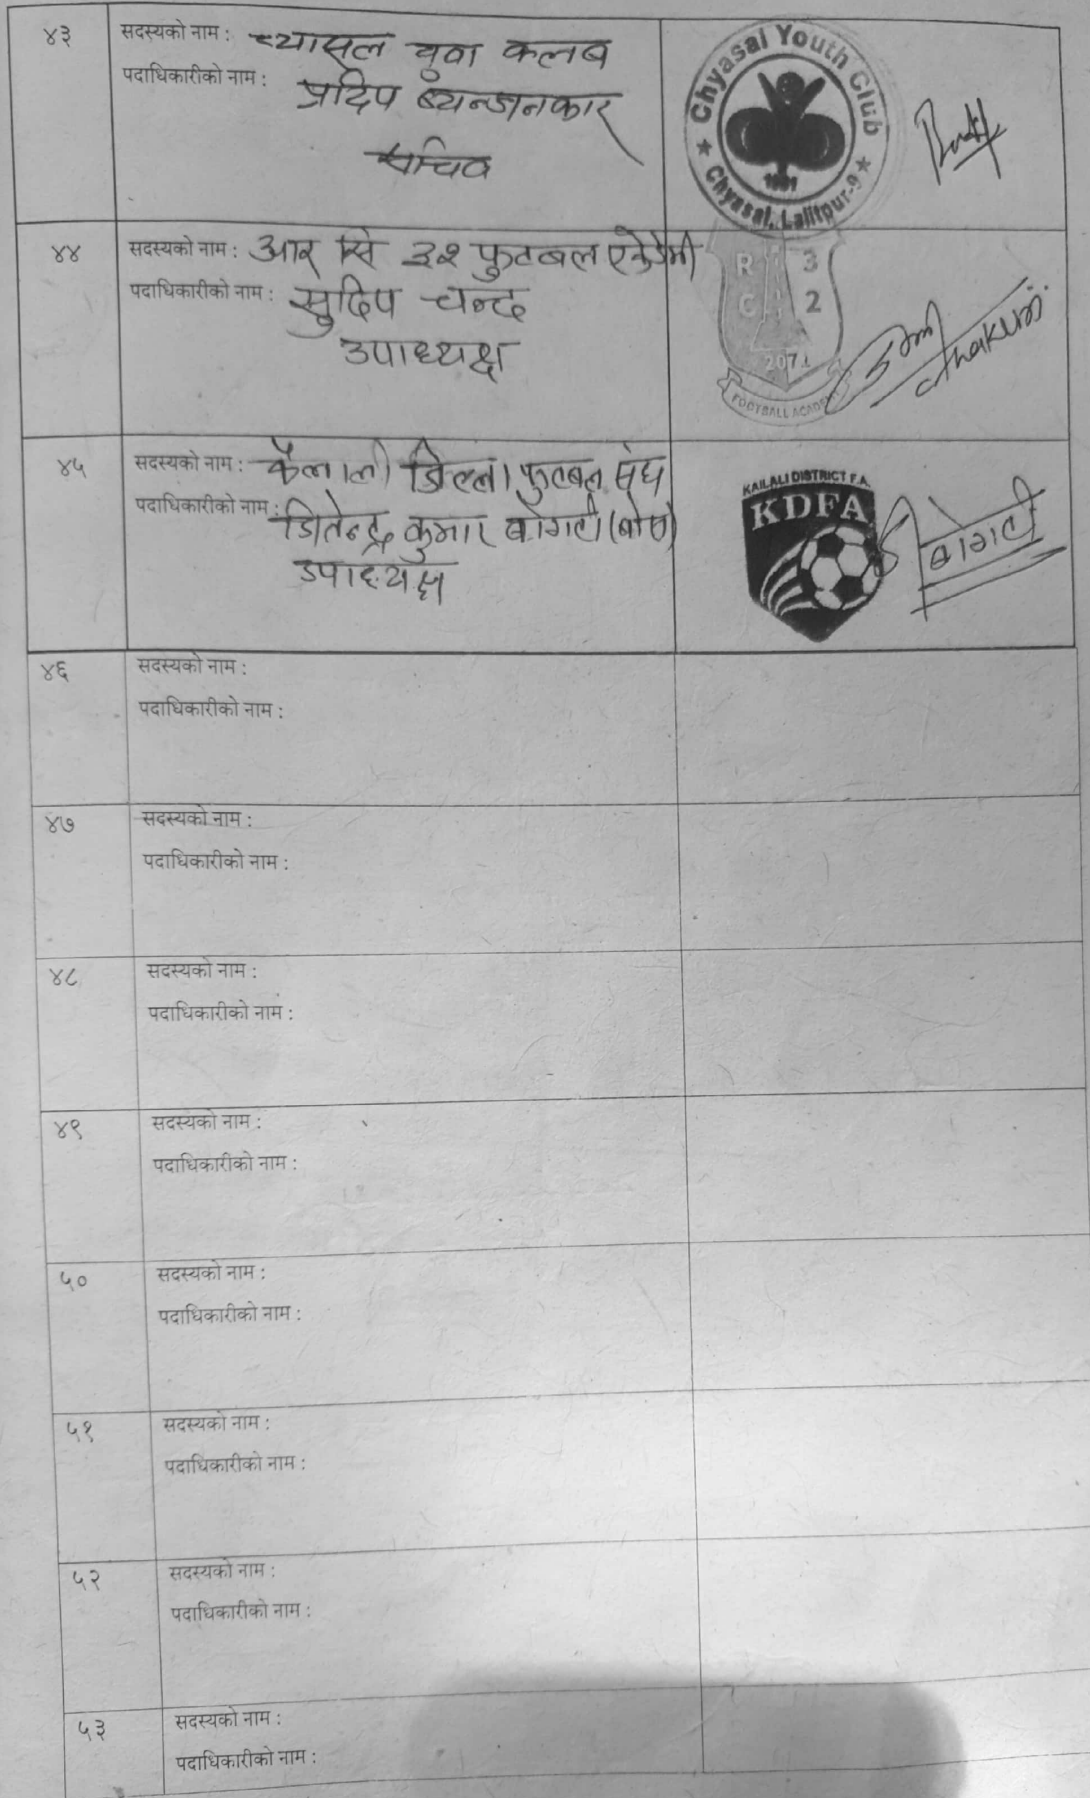 ४३
सदस्यको नाम : च्यासल युवा कलब
पदाधिकारीको नाम : प्रदिप ब्यन्जनकार
सचिव
Chyasal Youth Club
1991
Chyasal, Lalitpur-9
४४
सदस्यको नाम : आर सि ३२ फुटबल एकेडेमी
पदाधिकारीको नाम : सुदिप चन्द
उपाध्यक्ष
R 3
C 2
2071
FOOTBALL ACADEMY
४५
सदस्यको नाम : कैलाली जिल्ला फुटबल संघ
पदाधिकारीको नाम : जितेन्द्र कुमार बोगटी
उपाध्यक्ष
KAILALI DISTRICT F.A.
KDFA
बोगटी
४६
सदस्यको नाम :
पदाधिकारीको नाम :
४७
सदस्यको नाम :
पदाधिकारीको नाम :
४८
सदस्यको नाम :
पदाधिकारीको नाम :
४९
सदस्यको नाम :
पदाधिकारीको नाम :
५०
सदस्यको नाम :
पदाधिकारीको नाम :
५१
सदस्यको नाम :
पदाधिकारीको नाम :
५२
सदस्यको नाम :
पदाधिकारीको नाम :
५३
सदस्यको नाम :
पदाधिकारीको नाम :